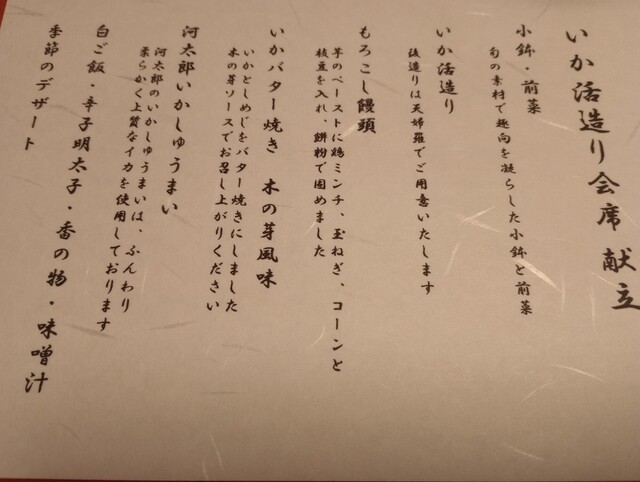 いか活造り会席 献立
小鉢・前菜
旬の素材で趣向を凝らした小鉢と前菜
いか活造り
後造りは天婦羅でご用意いたします
もろこし饅頭
芋のペーストに鶏ミンチ、玉ねぎ、コーンと
枝豆を入れ、餅粉で固めました
いかバター焼き 木の芽風味
いかとしめじをバター焼きにしました
木の芽ソースでお召し上がりください
河太郎いかしゅうまい
河太郎のいかしゅうまいは、ふんわり
柔らかく上質なイカを使用しております
白ご飯・辛子明太子・香の物・味噌汁
季節のデザート